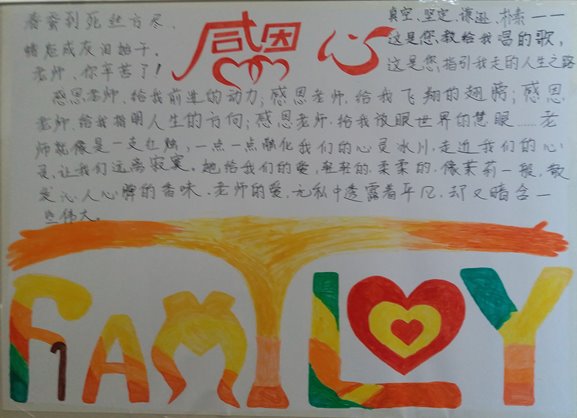 春蚕到死丝方尽
蜡炬成灰泪始干，
老师，你辛苦了！
感恩 心
真空、坚定、谦逊、朴素——
这是您教给我唱的歌，
这是您指引我走的人生之路
感恩老师，给我前进的动力；感恩老师，给我飞翔的翅膀；感恩
老师，给我指明人生的方向；感恩老师，给我放眼世界的慧眼……老
师就像是一支红烛，一点一点融化我们的心灵冰川，走近我们的心
灵，让我们远离寂寞。她给我们的爱，轻轻的，柔柔的，像茉莉一般，散
发沁人心脾的香味，老师的爱，无私中透露着平凡，却又暗含一
些伟大。
FAMILY